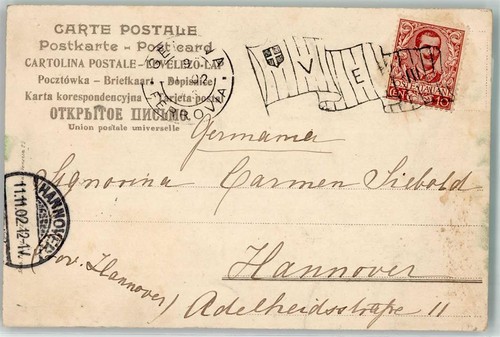 CARTE POSTALE
Postkarte - Post card
CARTOLINA POSTALE - LEVELEZŐ-LAP
Pocztówka - Briefkaart - Dopisnice
Karta korespondencyjna - Tarjeta postal
ОТКРЫТОЕ ПИСЬМО
Union postale universelle
FERROVIA
V E
POSTE ITALIANE
CENT. 10
Germania
Signorina Carmen Siebold
HANNOVER
11.11.02.12-1V.
Hannover
(Prov. Hannover)
Adelheidsstraße 11